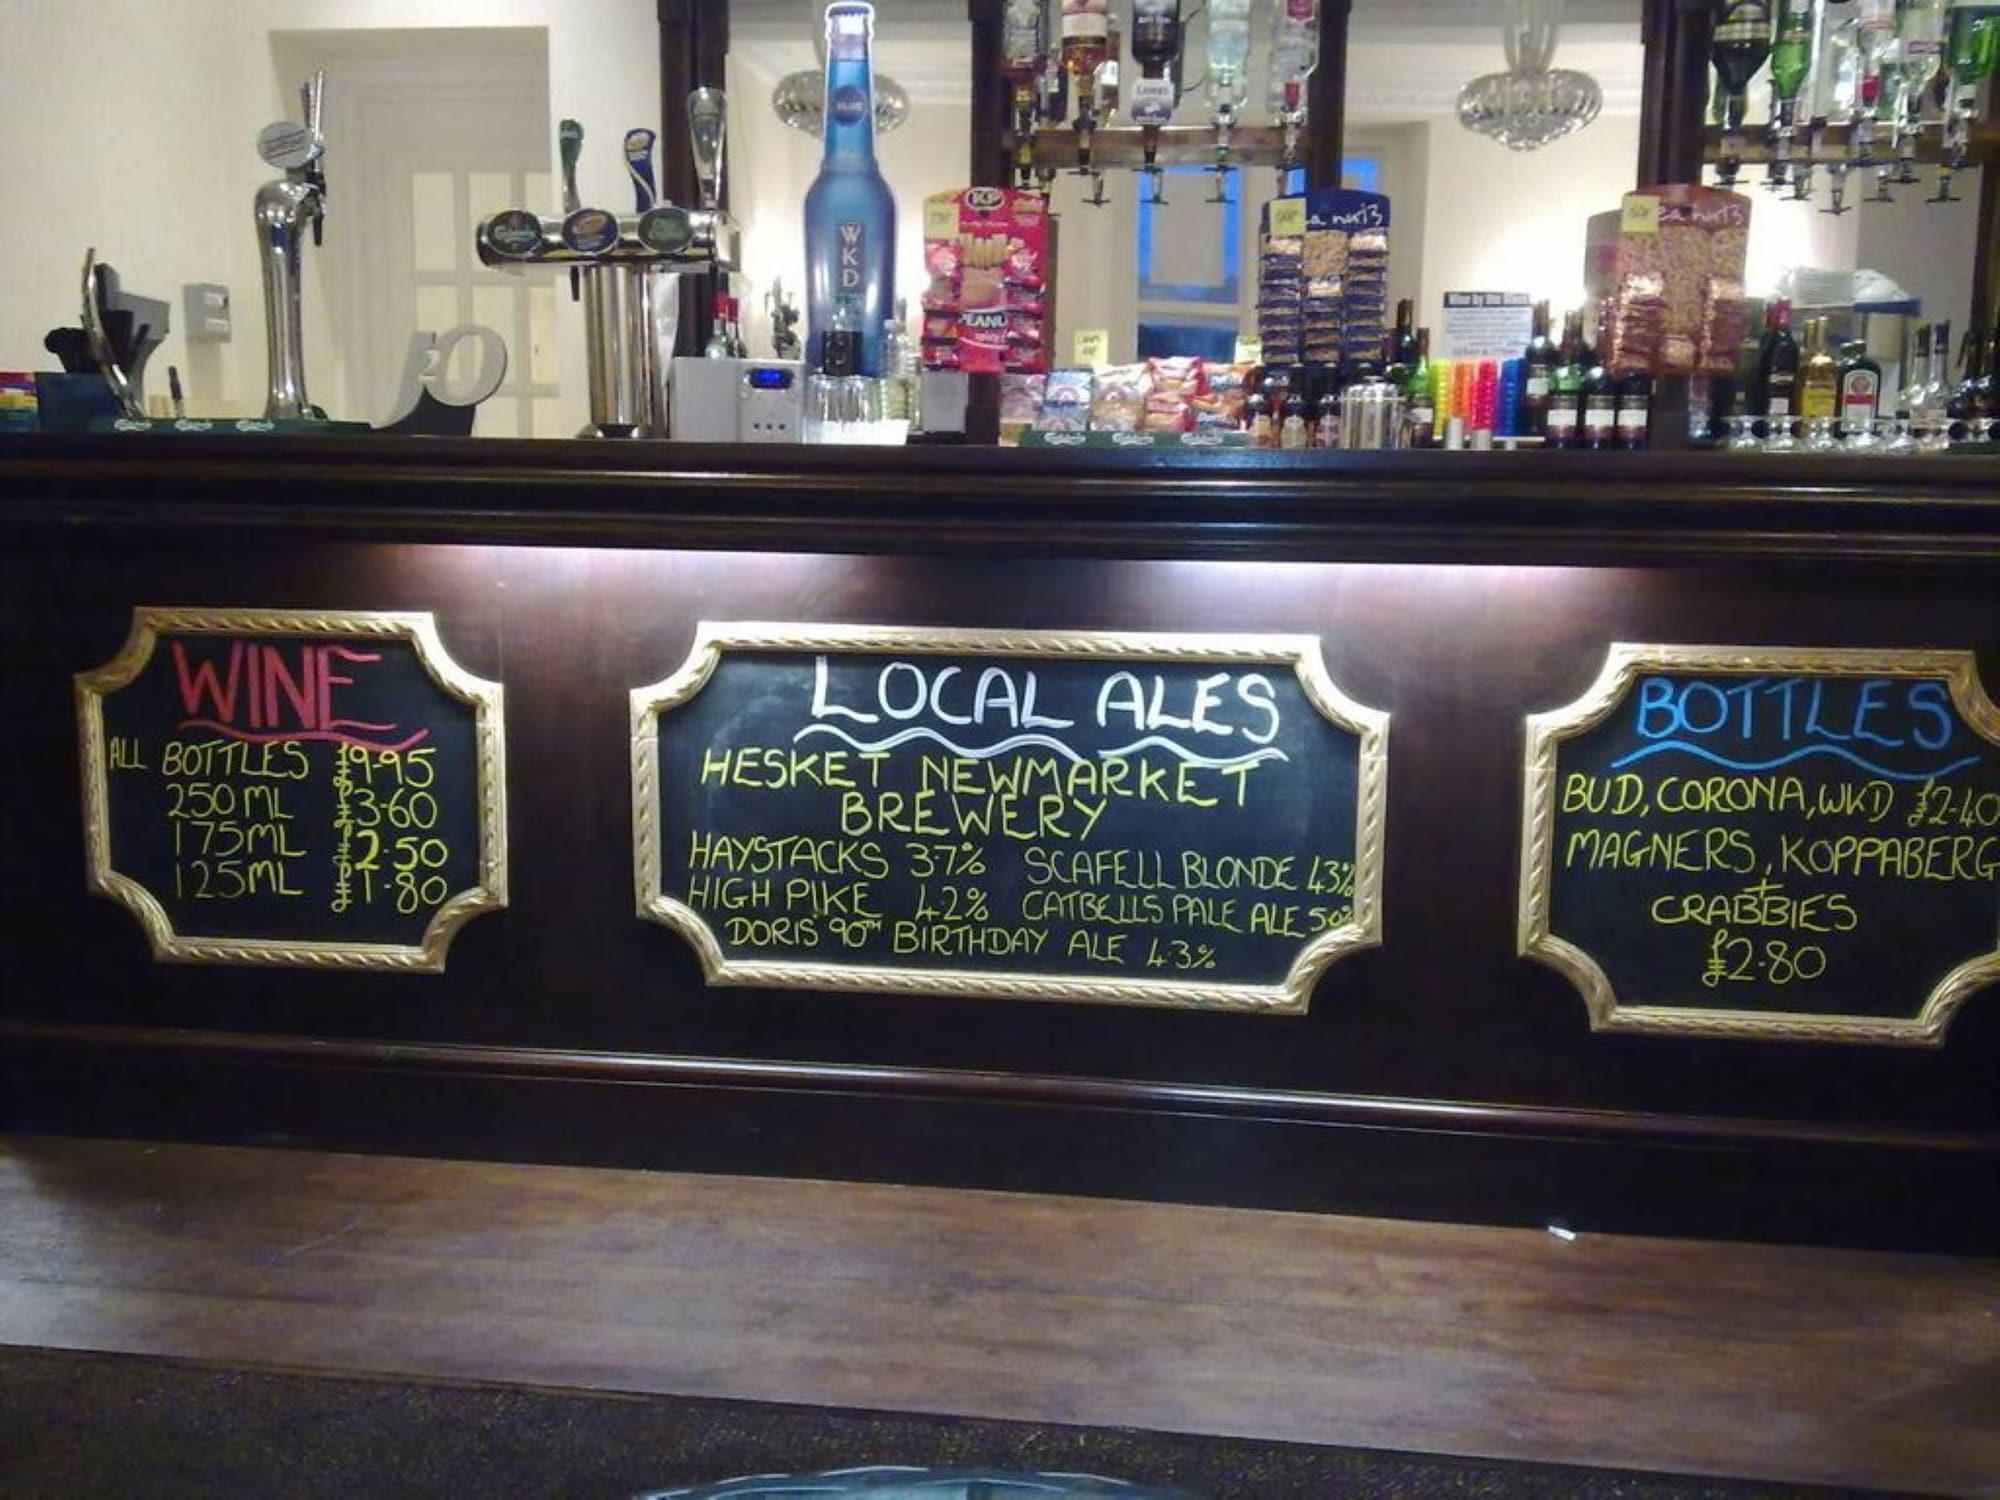 WKD
KP
PEANU
Wine by the Glass
J2O
Carlsberg
WINE
ALL BOTTLES £9-95
250ML £3-60
175ML £2-50
125ML £1-80
LOCAL ALES
HESKET NEWMARKET
BREWERY
HAYSTACKS 3-7% SCAFELL BLONDE 4.3%
HIGH PIKE 4.2% CATBELLS PALE ALE 5.0%
DORIS' 90TH BIRTHDAY ALE 4.3%
BOTTLES
BUD, CORONA, WKD £2-40
MAGNERS, KOPPABERG
+
CRABBIES
£2-80